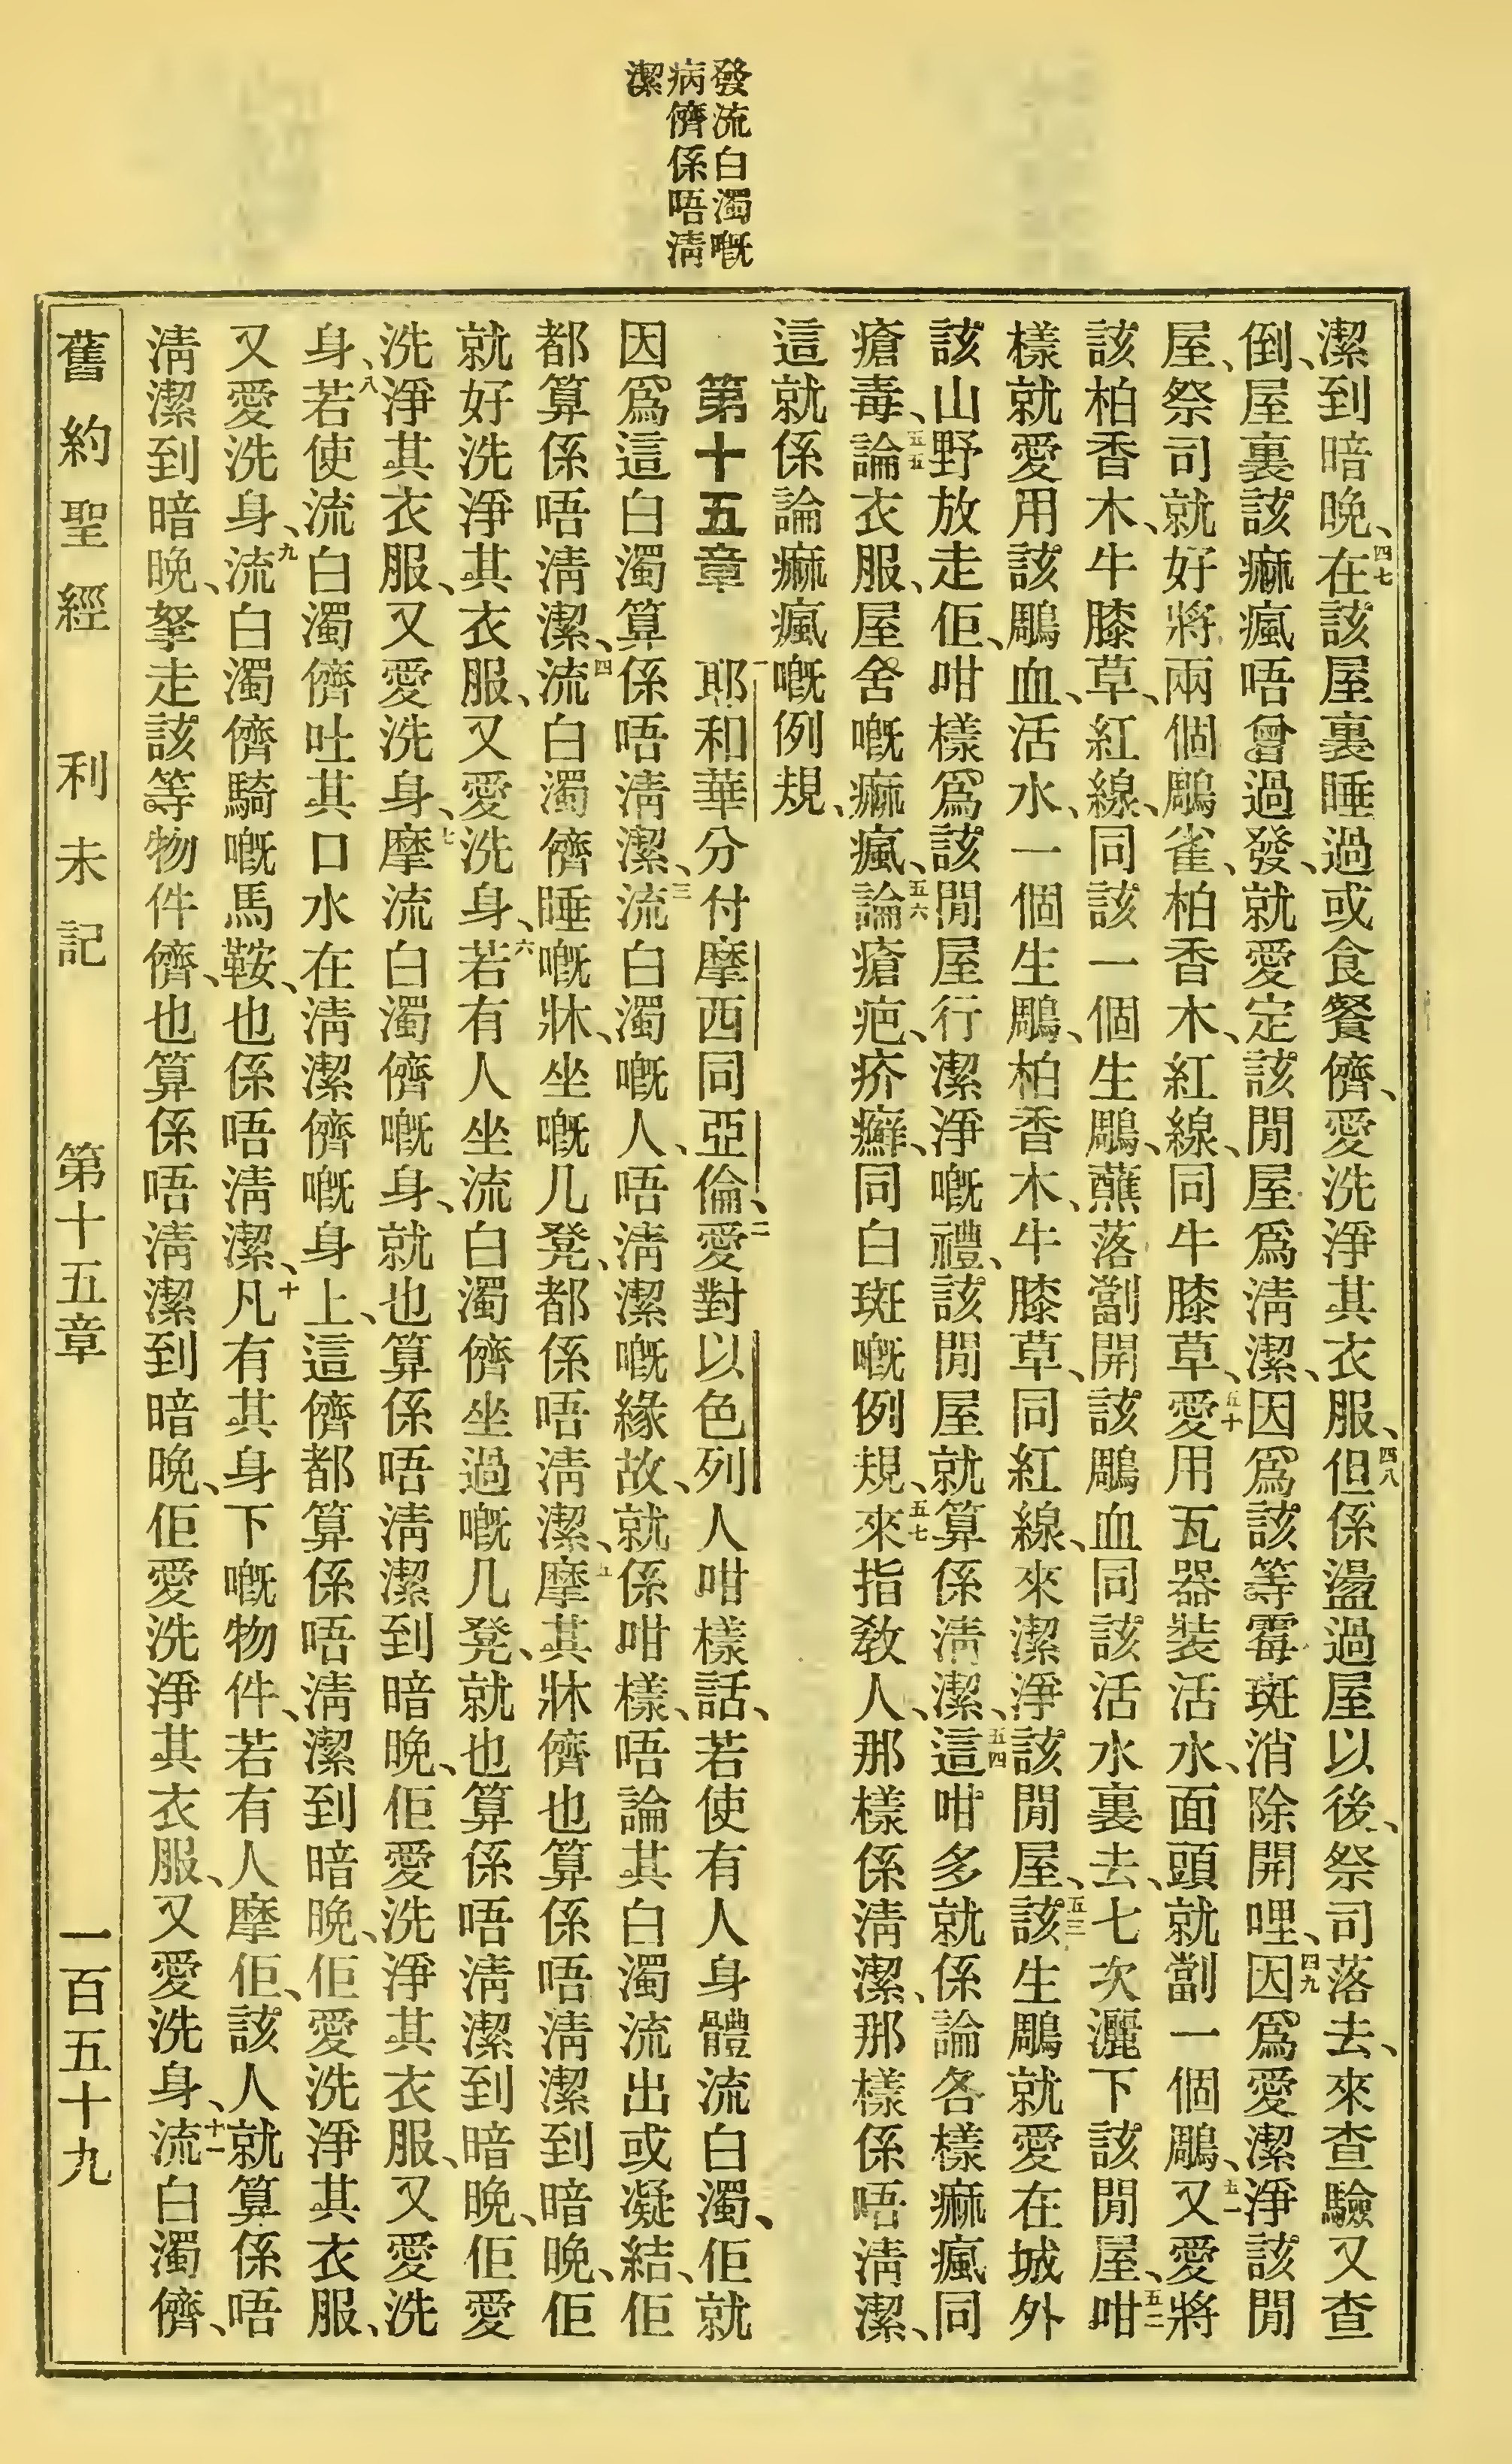 發流白濁嘅
病儕係唔淸
潔
潔到暗晚、四七在該屋裏睡過或食餐儕、愛洗淨其衣服、四八但係盪過屋以後、祭司落去、來查驗又查
倒、屋裏該痲瘋唔曾過發、就愛定該間屋爲淸潔、因爲該等霉斑消除開哩、四九因爲愛潔淨該間
屋、祭司就好將兩個鵰雀、柏香木、紅線、同牛膝草、五十愛用瓦器裝活水、面頭就劏一個鵰、五一又愛將
該柏香木、牛膝草、紅線、同該一個生鵰、蘸落劏開該鵰血同該活水裏去、七次灑下該間屋、五二咁
樣就愛用該鵰血、活水、一個生鵰、柏香木、牛膝草、同紅線、來潔淨該間屋、五三該生鵰就愛在城外
該山野放走佢、咁樣爲該間屋行潔淨嘅禮、該間屋就算係淸潔、五四這咁多就係論各樣痲瘋同
瘡毒、五五論衣服、屋舍嘅痲瘋、五六論瘡疤、疥癬、同白斑嘅例規、五七來指敎人、那樣係淸潔、那樣係唔淸潔、
這就係論痲瘋嘅例規、
第十五章 一耶和華分付摩西同亞倫、二愛對以色列人咁樣話、若使有人身體流白濁、佢就
因爲這白濁算係唔淸潔、三流白濁嘅人、唔淸潔嘅緣故、就係咁樣、唔論其白濁流出或凝結、佢
都算係唔淸潔、四流白濁儕睡嘅牀、坐嘅几凳、都係唔淸潔、五摩其牀儕也算係唔淸潔到暗晚、佢
就好洗淨其衣服、又愛洗身、六若有人坐流白濁儕坐過嘅几凳、就也算係唔淸潔到暗晚、佢愛
洗淨其衣服、又愛洗身、七摩流白濁儕嘅身、就也算係唔淸潔到暗晚、佢愛洗淨其衣服、又愛洗
身、八若使流白濁儕吐其口水在淸潔儕嘅身上、這儕都算係唔淸潔到暗晚、佢愛洗淨其衣服、
又愛洗身、九流白濁儕騎嘅馬鞍、也係唔淸潔、十凡有其身下嘅物件、若有人摩佢、該人就算係唔
淸潔到暗晚、拏走該等物件儕、也算係唔淸潔到暗晚、佢愛洗淨其衣服、又愛洗身、十一流白濁儕、
舊約聖經 利未記 第十五章 一百五十九